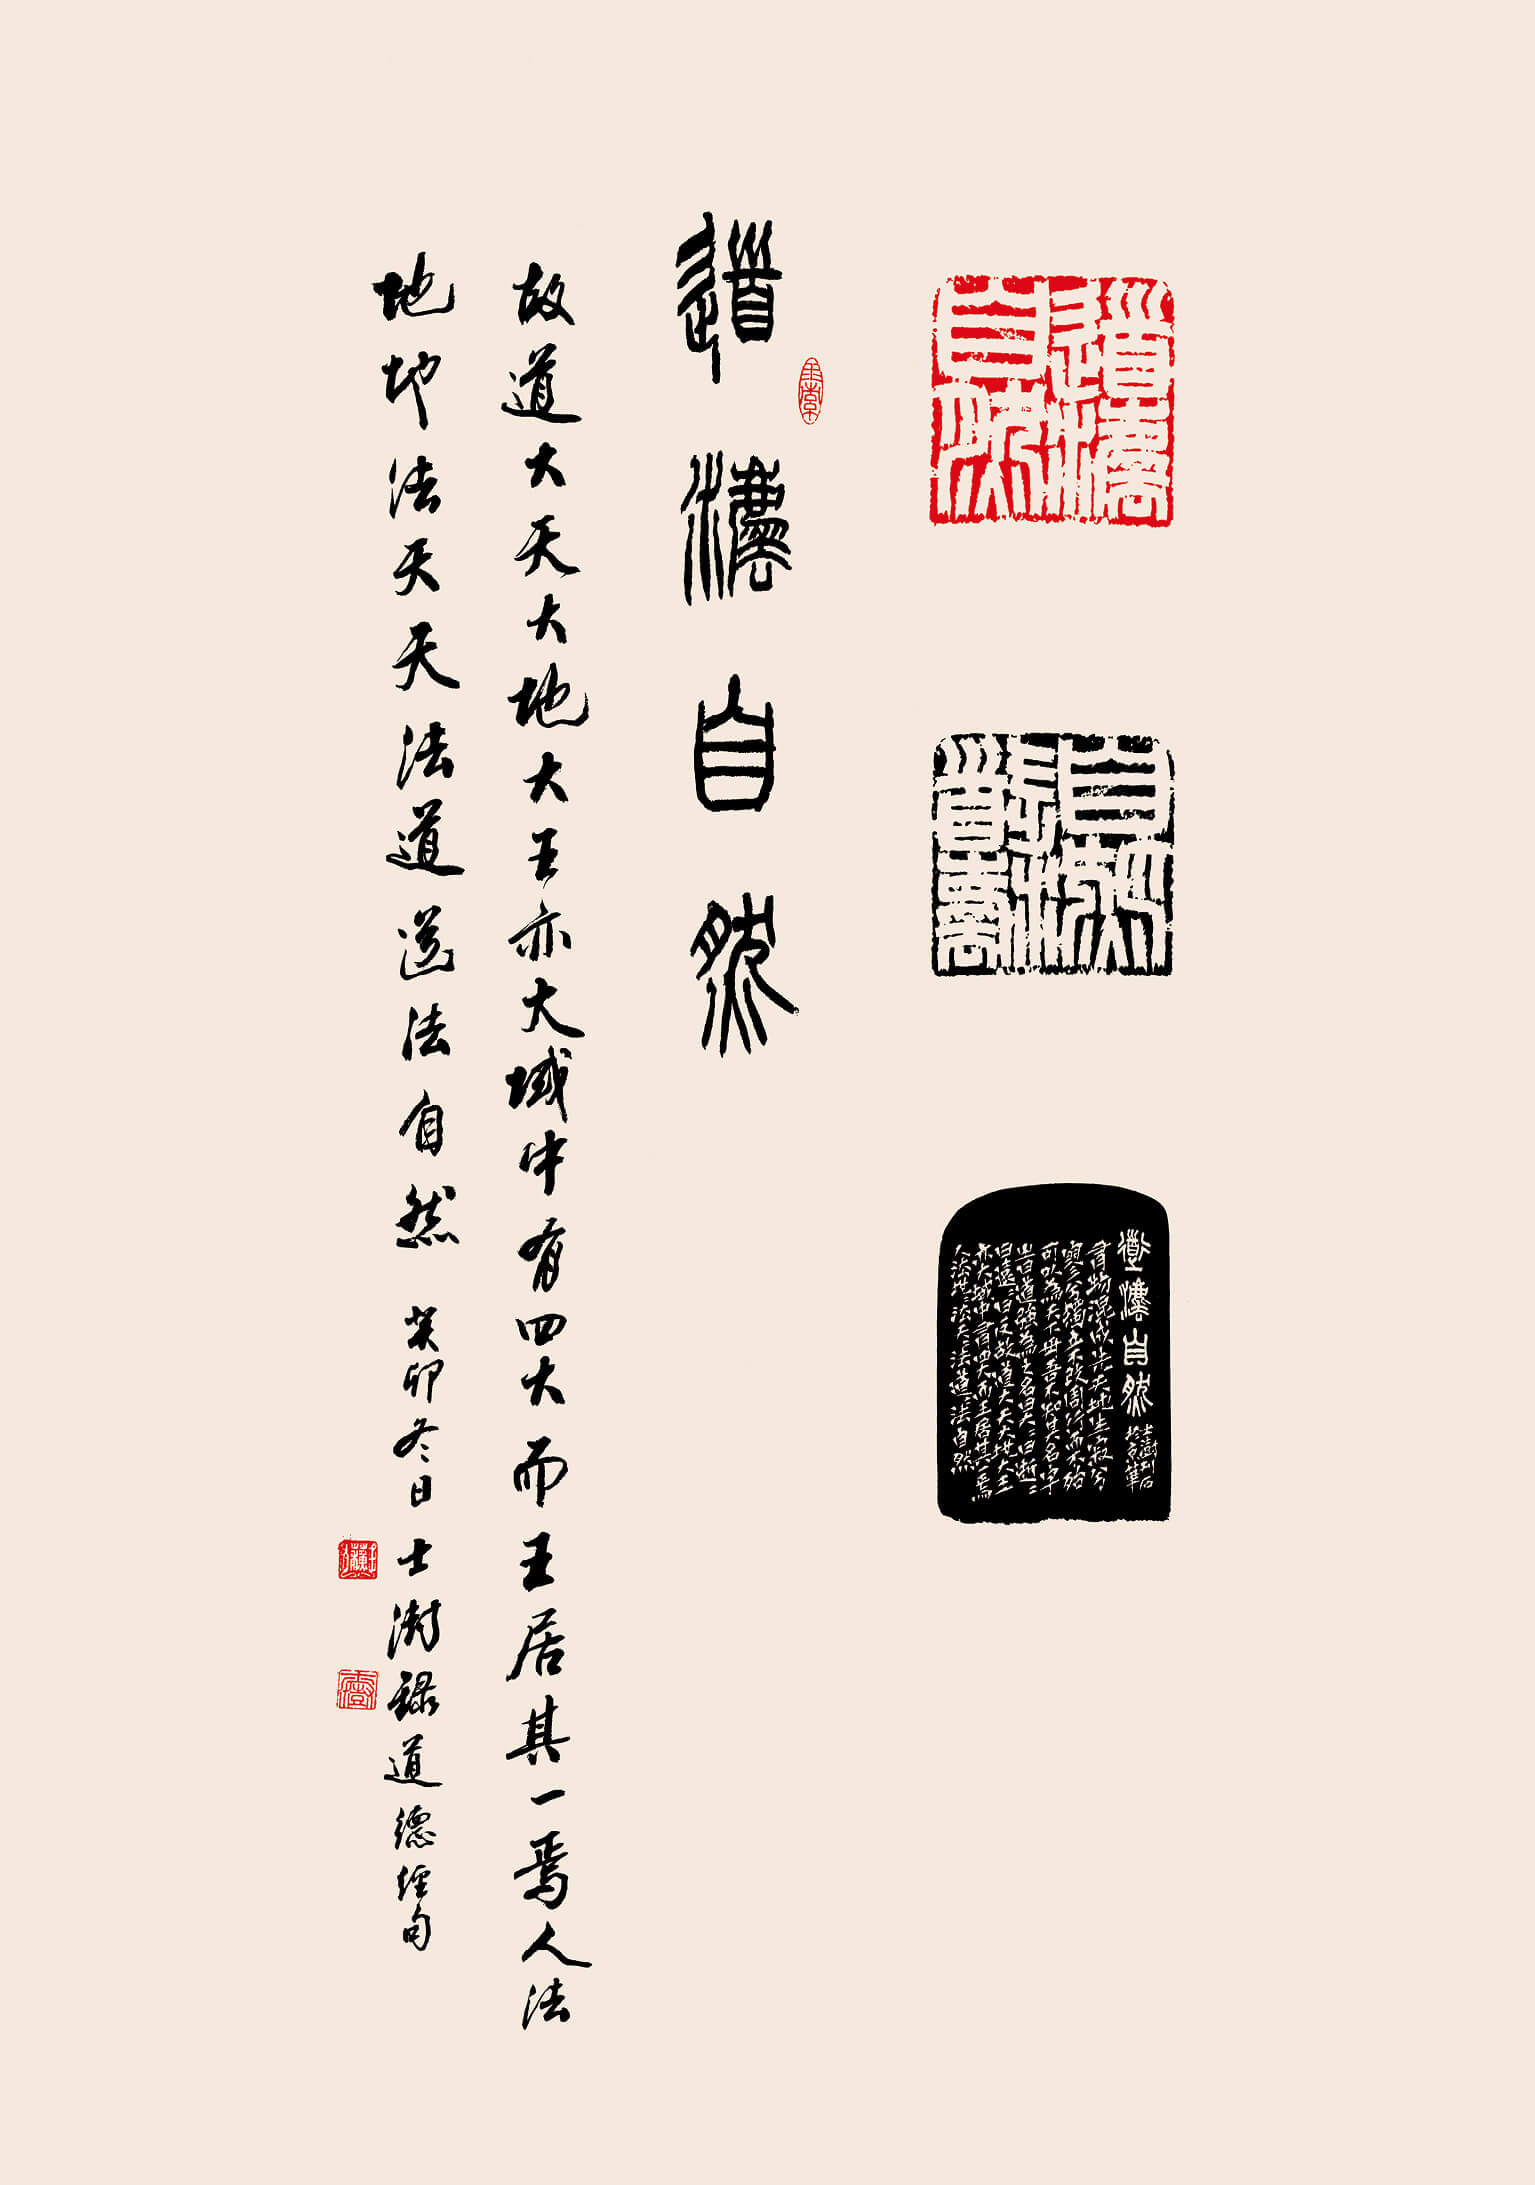 道法自然
道法自然
道灋自然
有物混成先天地生寂兮
寥兮獨立不改周行而不殆
可以為天下母吾不知其名字
之曰道強為之名曰大大曰逝逝
曰遠遠曰反故道大天大地大王
亦大域中有四大而王居其一焉
人法地地法天天法道道法自然
道灋自然
故道大天大地大王亦大域中有四大而王居其一焉人法
地地法天天法道道法自然 癸卯冬日 士澍錄道德經句